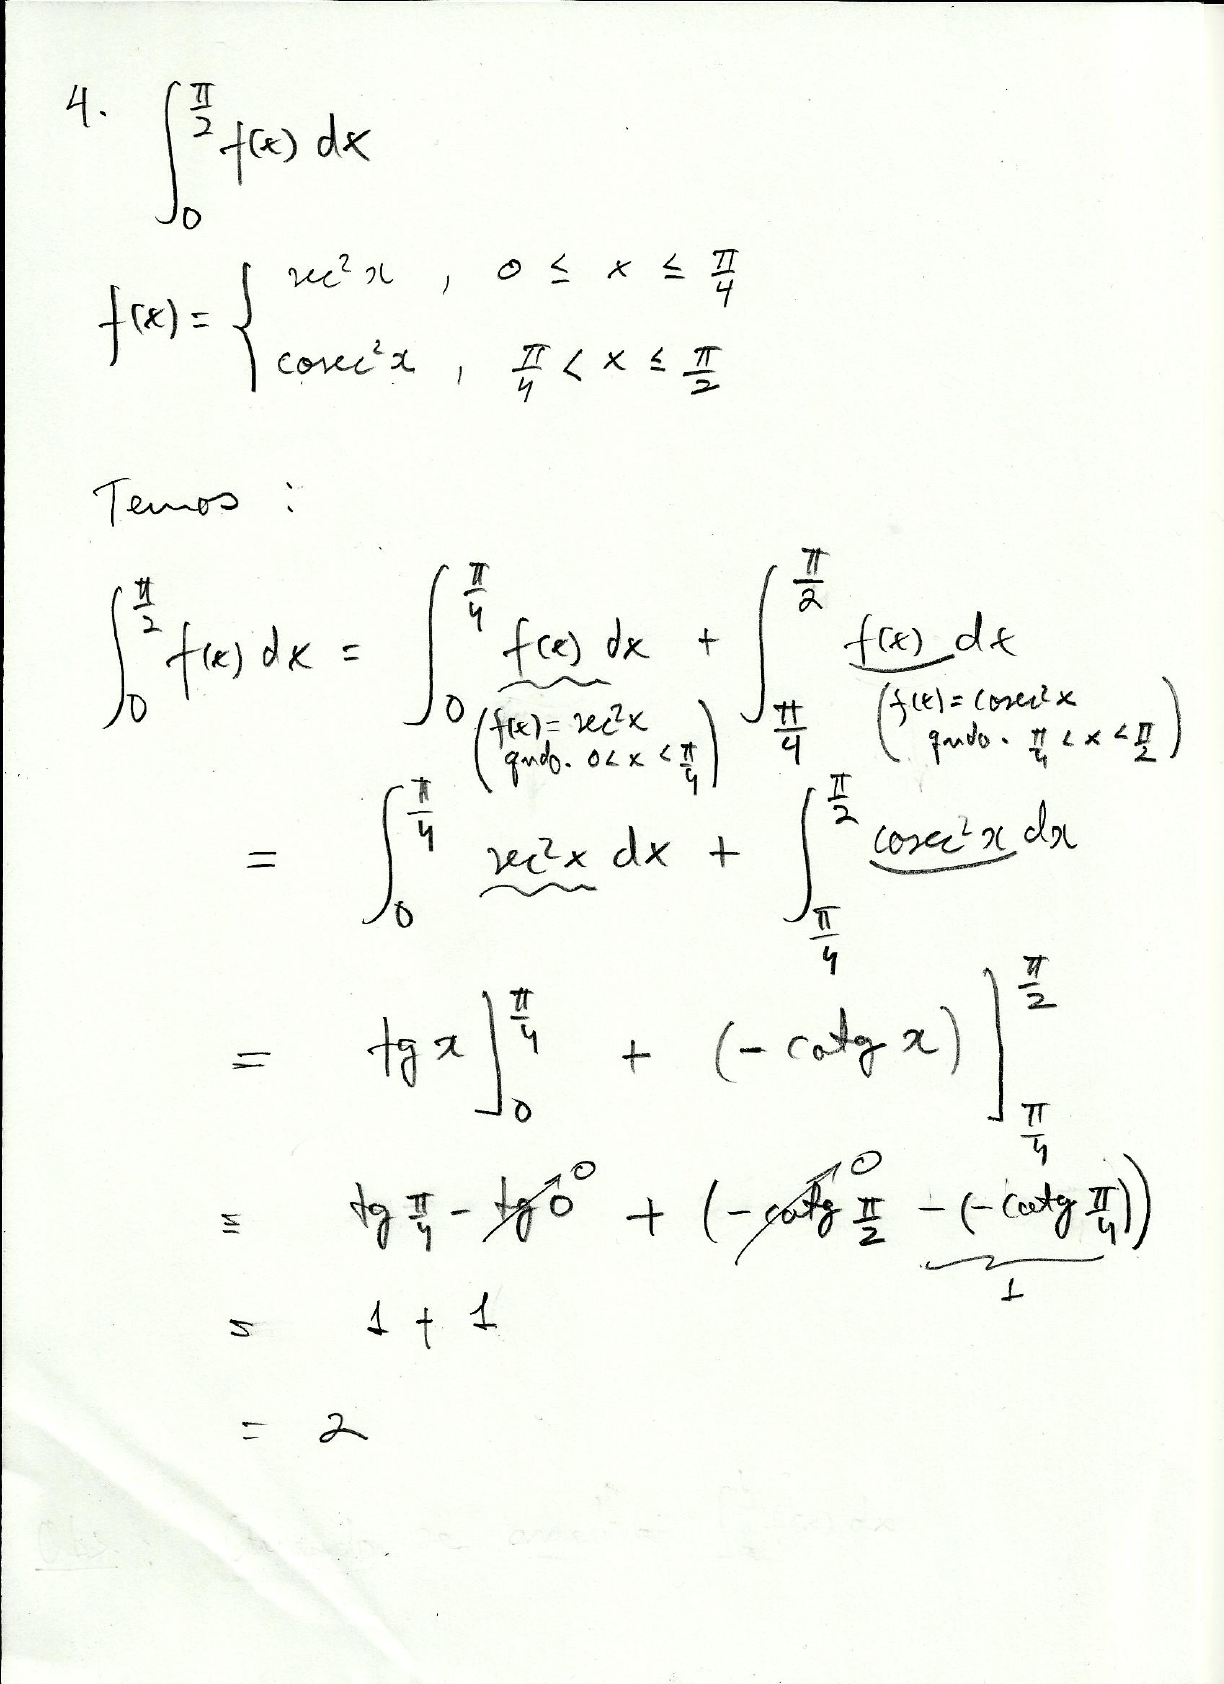 4. ∫₀^{π/2} f(x) dx
f(x) = { sec²x , 0 ≤ x ≤ π/4
cosec²x , π/4 < x ≤ π/2
Temos :
∫₀^{π/2} f(x) dx = ∫₀^{π/4} f(x) dx + ∫_{π/4}^{π/2} f(x) dx
(f(x) = sec²x (f(x) = cosec²x
qndo. 0 < x < π/4) qndo. π/4 < x < π/2)
= ∫₀^{π/4} sec²x dx + ∫_{π/4}^{π/2} cosec²x dx
= tg x ]₀^{π/4} + (- cotg x) ]_{π/4}^{π/2}
= tg π/4 - tg 0 → 0 + (- cotg π/2 → 0 - (- cotg π/4))
1
= 1 + 1
= 2